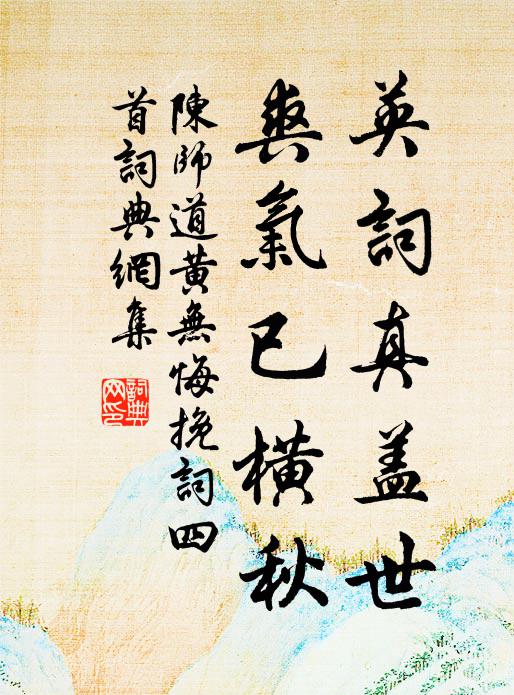 英詞真盖世
爽氣已橫秋
陳師道黃無悔挽詞四
首詞典網集
詞典網印